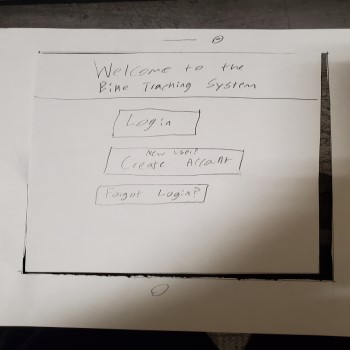 Welcome to the
Bike Tracking System
Login
New User?
Create Account
Forgot Login?